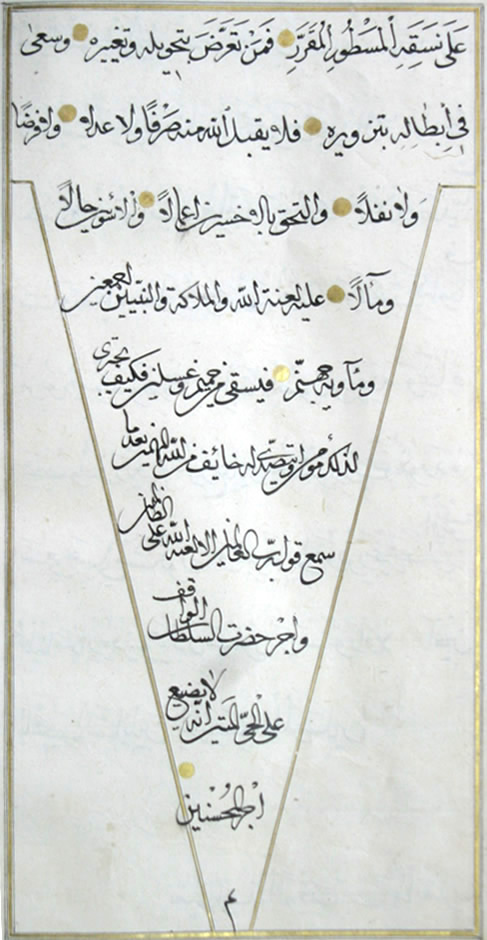 على نسقه المسطور المقرر فمن تعرض بتحويله وتغييره وسعى
في إبطاله بتزويره فلا يقبل الله منه صرفا ولا عدلا ولا فرضا
ولا نفلا والتحق بالاخسرين اعمالا والاسوء حالا
ومآلا عليه لعنة الله والملائكة والنبيين اجمعين
ومأويه جهنم فيسقى من حميم وغسلين فكيف يجترى
لذلك مؤمن او يتصدى له خائف من الله المهيمن بعدما
سمع قول رب العالمين الا لعنة الله على الظالمين
واجر حضرت السلطان الواقف
على الحي المتين انه لا يضيع
اجر المحسنين
م